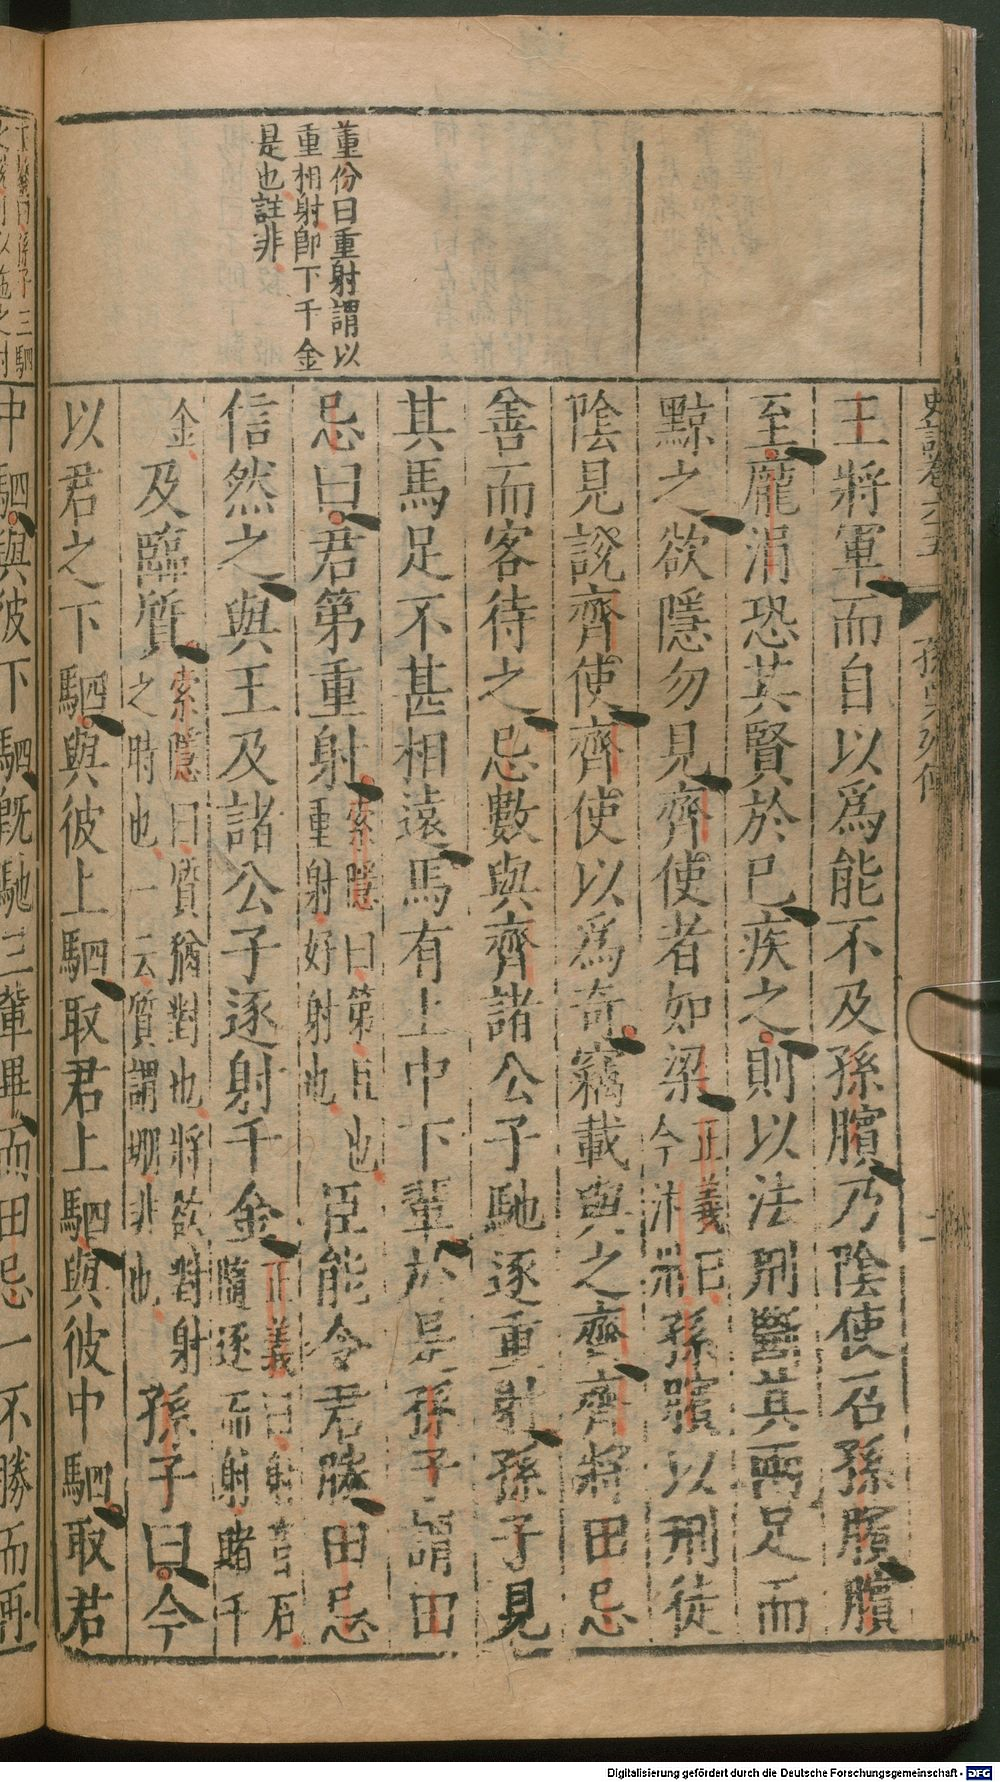 史記卷六十五 孫吳列傳 二
王將軍而自以爲能不及孫臏乃陰使召孫臏臏
至龐涓恐其賢於已疾之則以法刑斷其兩足而
黥之欲隱勿見齊使者如梁
正義曰
今汴州
孫臏以刑徒
陰見說齊使齊使以爲奇竊載與之齊齊將田忌
善而客待之忌數與齊諸公子馳逐重射孫子見
其馬足不甚相遠馬有上中下輩於是孫子謂田
忌曰君第重射
索隱曰第且也
重射好射也
臣能令君勝田忌
信然之與王及諸公子逐射千金
正義曰射音石
隨逐而射賭千
金
及臨質
索隱曰質猶對也將欲對射
之時也一云質謂堋非也
孫子曰今
以君之下駟與彼上駟取君上駟與彼中駟取君
中駟與彼下駟旣馳三輩畢而田忌一不勝而再
董份曰重射謂以
重相射卽下千金
是也註非
孫子三駟
Digitalisierung gefördert durch die Deutsche Forschungsgemeinschaft - DFG